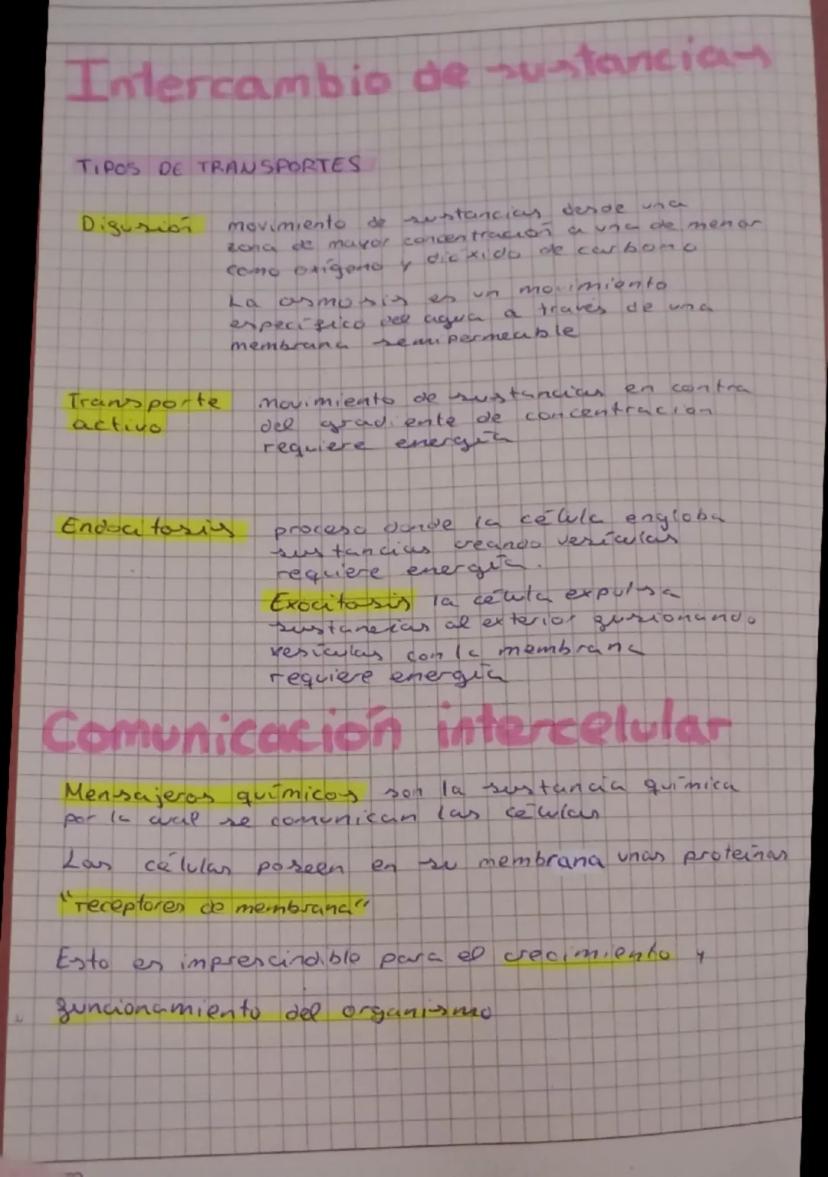 Intercambio de sustancias
TIPOS DE TRANSPORTES
Difusión movimiento de sustancias desde una
zona de mayor concentración a una de menor
como oxígeno y dióxido de carbono
La osmosis es un movimiento
específico del agua a través de una
membrana semipermeable
Transporte movimiento de sustancias en contra
activo del gradiente de concentracion
requiere energía
Endocitosis proceso donde la célula engloba
sustancias creando vesículas
requiere energía.
Exocitosis la célula expulsa
sustancias al exterior fusionando
vesículas con la membrana
requiere energía
Comunicación intercelular
Mensajeros químicos son la sustancia química
por la cual se comunican las células
Las células poseen en su membrana unas proteínas
"receptores de membrana"
Esto es imprescindible para el crecimiento y
funcionamiento del organismo